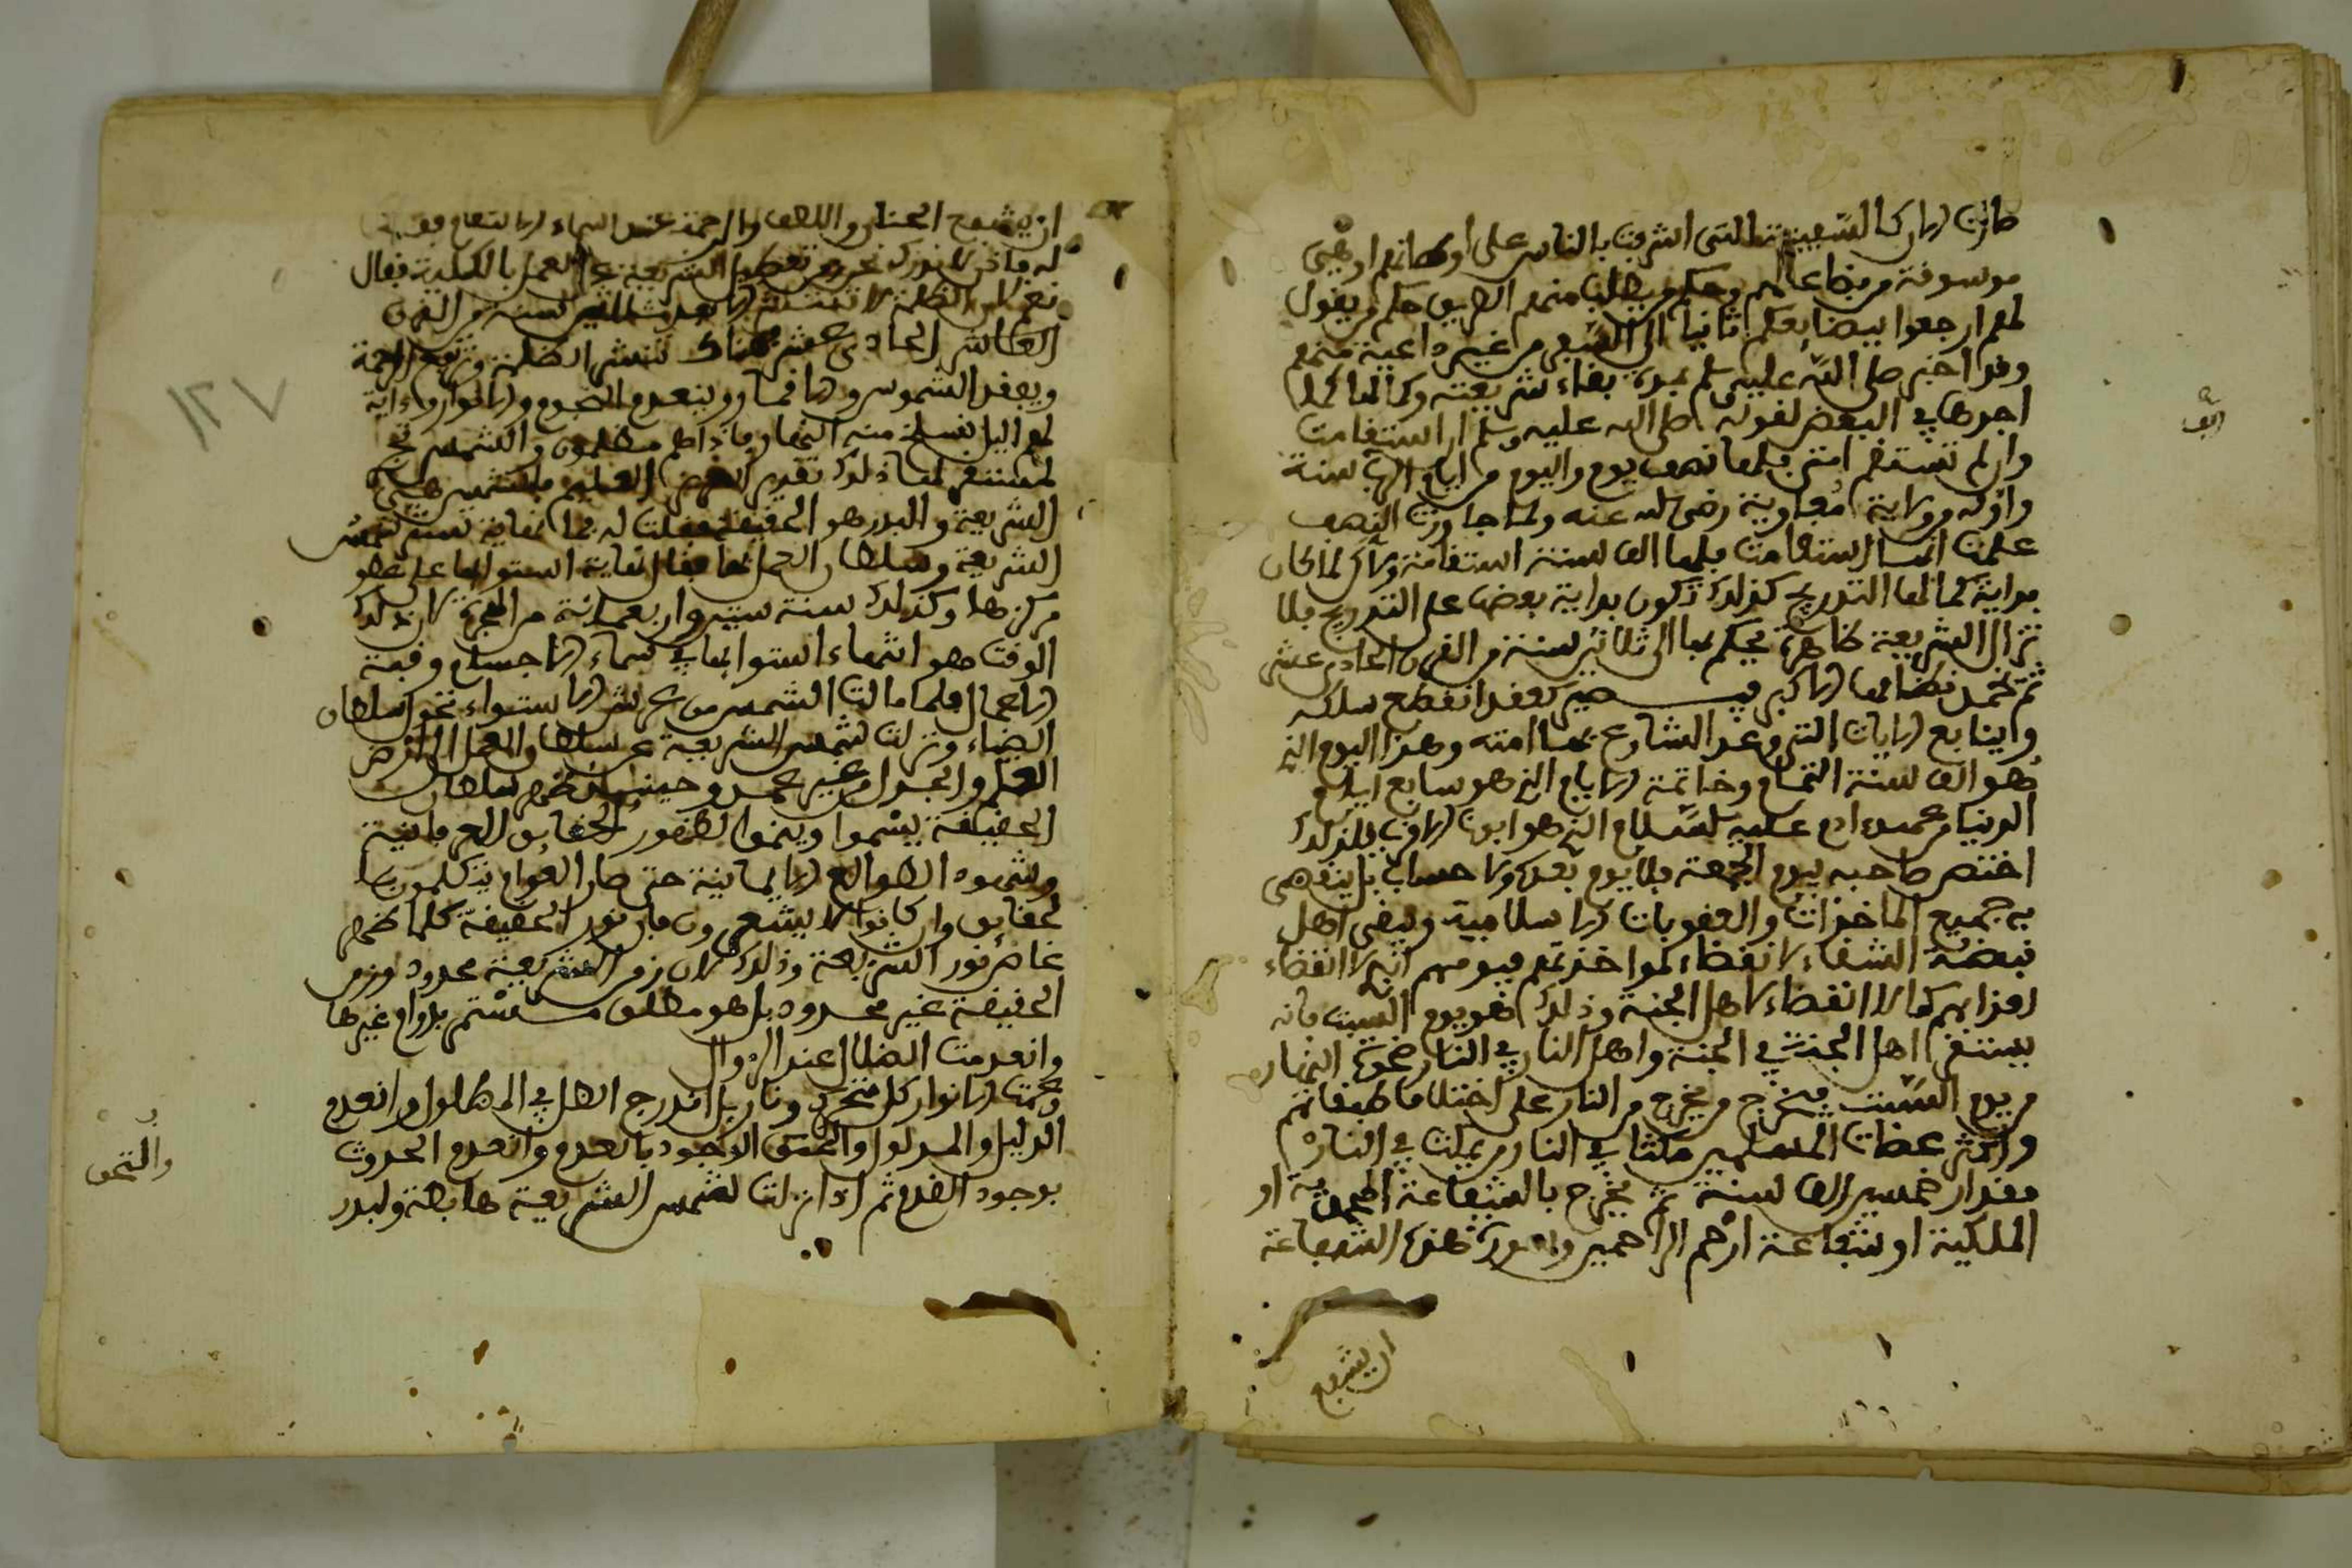 كانت الاركان السفينة التي اشرفت بالناس على اوطانهم او هي
موسوفة من بضاعاتهم وحكم من يطلب منهم الطريق حكم من يقول
لهم ارجعوا ببضايعكم ثانيا الى السفر من غير داعية منهم
وقد اخبر صلى الله عليه وسلم بمدة بقاء شريعته وكمالها
اجرها في البعض لقوله صلى الله عليه وسلم ان استقامت
وان لم تستقم امتى فلها نصف يوم واليوم من ايام الف سنة
واوله من ولاية معاوية رضى الله عنه ولما جاوزت النصف
علمت انها استقامت فلها الف سنة استقامة ولاكن لما كان
بداية كمالها التدريج كذلك تكون بداية بعض على التدريج فلا
تزال الشريعة ظاهرة يحكم بها الى ثلاثين سنة من القرن الحادى عشر
ثم تخمل نظامها الاكبر فيصير كعقد انقطع سلكه
وايتابع الايات التى وعد الشارع بها امته وهذا اليوم الذى
هو الف سنة التمام وخاتمة الايام الذى هو سابع ايام
الدنيا من عهد ادم عليه السلام الذى هو ابونا الاقرب فلذلك
اختص صاحبه بيوم الجمعة فلا يوم بعده ولا حساب بل ينقضى
به جميع الماخذات والعقوبات الاسلامية ويبقى اهل
قبضة الشقاء لا انقضاء لمواخذتهم فيومهم انه لا انقضاء
لعذابهم كما لا انقضاء لاهل الجنة وذلك هو يوم السبت فانه
يستقر اهل الجنة في الجنة واهل النار في النار ضحوة النهار
من يوم السبت فيخرج من يخرج من النار على اختلاف طبقاتهم
واكثر عصات المسلمين مكثا في النار من يمكث في النار
مقدار خمسين الف سنة ثم يخرج بالشفاعة المحمدية او
الملكية او شفاعة ارحم الراحمين وصورة هذه الشفاعة
ان يشفع
ان يشفع الحنان واللطف والرحمة عند اسماء الانتقام
له فاذن لا ندرك نحن تعطيل الشريعة من العمل بالكلية فقال
نعم لان الظلمة لا تنتشر الا بعد ثلاثين سنة من القرن
الحادى عشر هناك تنتشر الظلمة وترفع الرحمة
ويفقد الشموس والاقمار وينعدم النجوم والانوار واية
لهم اليل نسلخ منه النهار فاذا هم مظلمون والشمس تجرى
لمستقر لها ذلك تقدير العزيز العليم فالشمس هي
الشريعة والبدر هو الحقيقة فقلت له فما نهاية سير شمس
الشريعة وسلطان العمل بها فقال نهاية استوائها على
مركزها وكذلك سنة ستين واربعمائة من الهجرة لان ذلك
الوقت هو انتهاء استوائها في سماء الاجسام وقبة
الاعمال فلما مالت الشمس من عرش الاستواء نحو سلطان
الفناء ونزلت شمس الشريعة من سلطان العمل الى ارض
العلم والجدل من غير عمل وحينئذ ظهر سلطان
الحقيقة يسموا وينموا لظهور الحقايق العرفانية
وشهود الطوالع الايمانية حتى صار العوام يتكلمون بها
لحقايق وان كانوا لا يشعرون فان نور الحقيقة كلما ظهر
غاض نور الشريعة وذلك لان زمن الشريعة محدود وزمن
الحقيقة غير محدود بل هو مطلق مستمر بدوام غيرها
وانعدمت الظلال عند الزوال
ومحقت الانوار كل متحرك ونازل اندرج الظل في المظلول وانعدم
الدليل والمدلول والتحق الوجود بالعدم وانعدم الحدوث
بوجود القدم ثم اذا نزلت شمس الشريعة هابطة ولبدر
والتحق
١٢٧